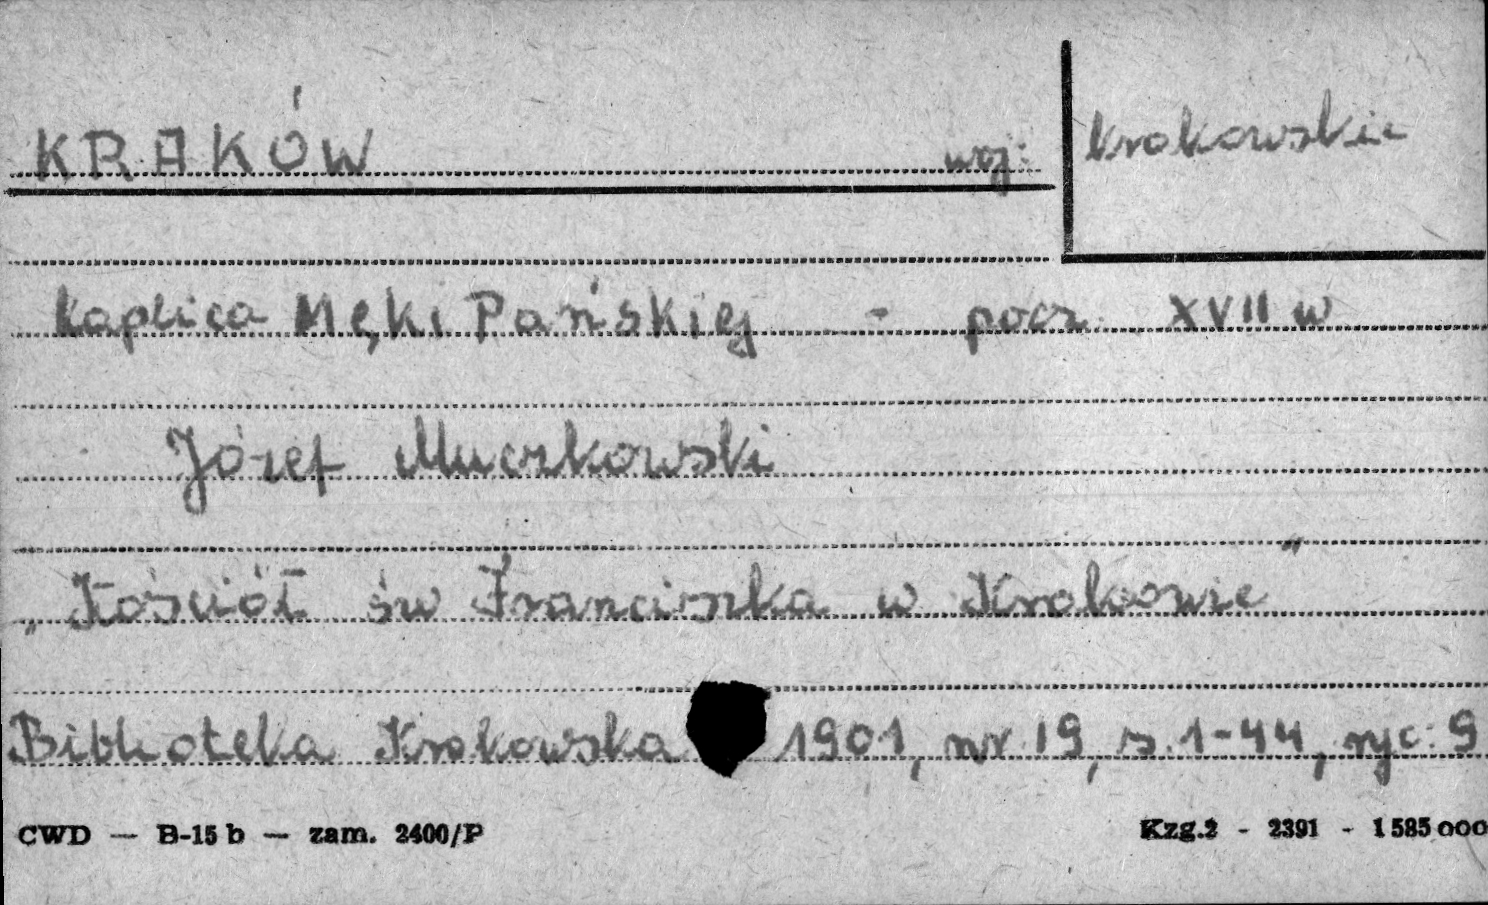 KRAKÓW woj: krakowskie
kaplica Męki Pańskiej - pocz. XVII w
Józef Muczkowski
„Kościół św Franciszka w Krakowie"
Biblioteka Krakowska 1901, nr 19, s. 1-44, ryc. 9
CWD — B-15 b — zam. 2400/P Kzg.2 - 2391 - 1 585 000